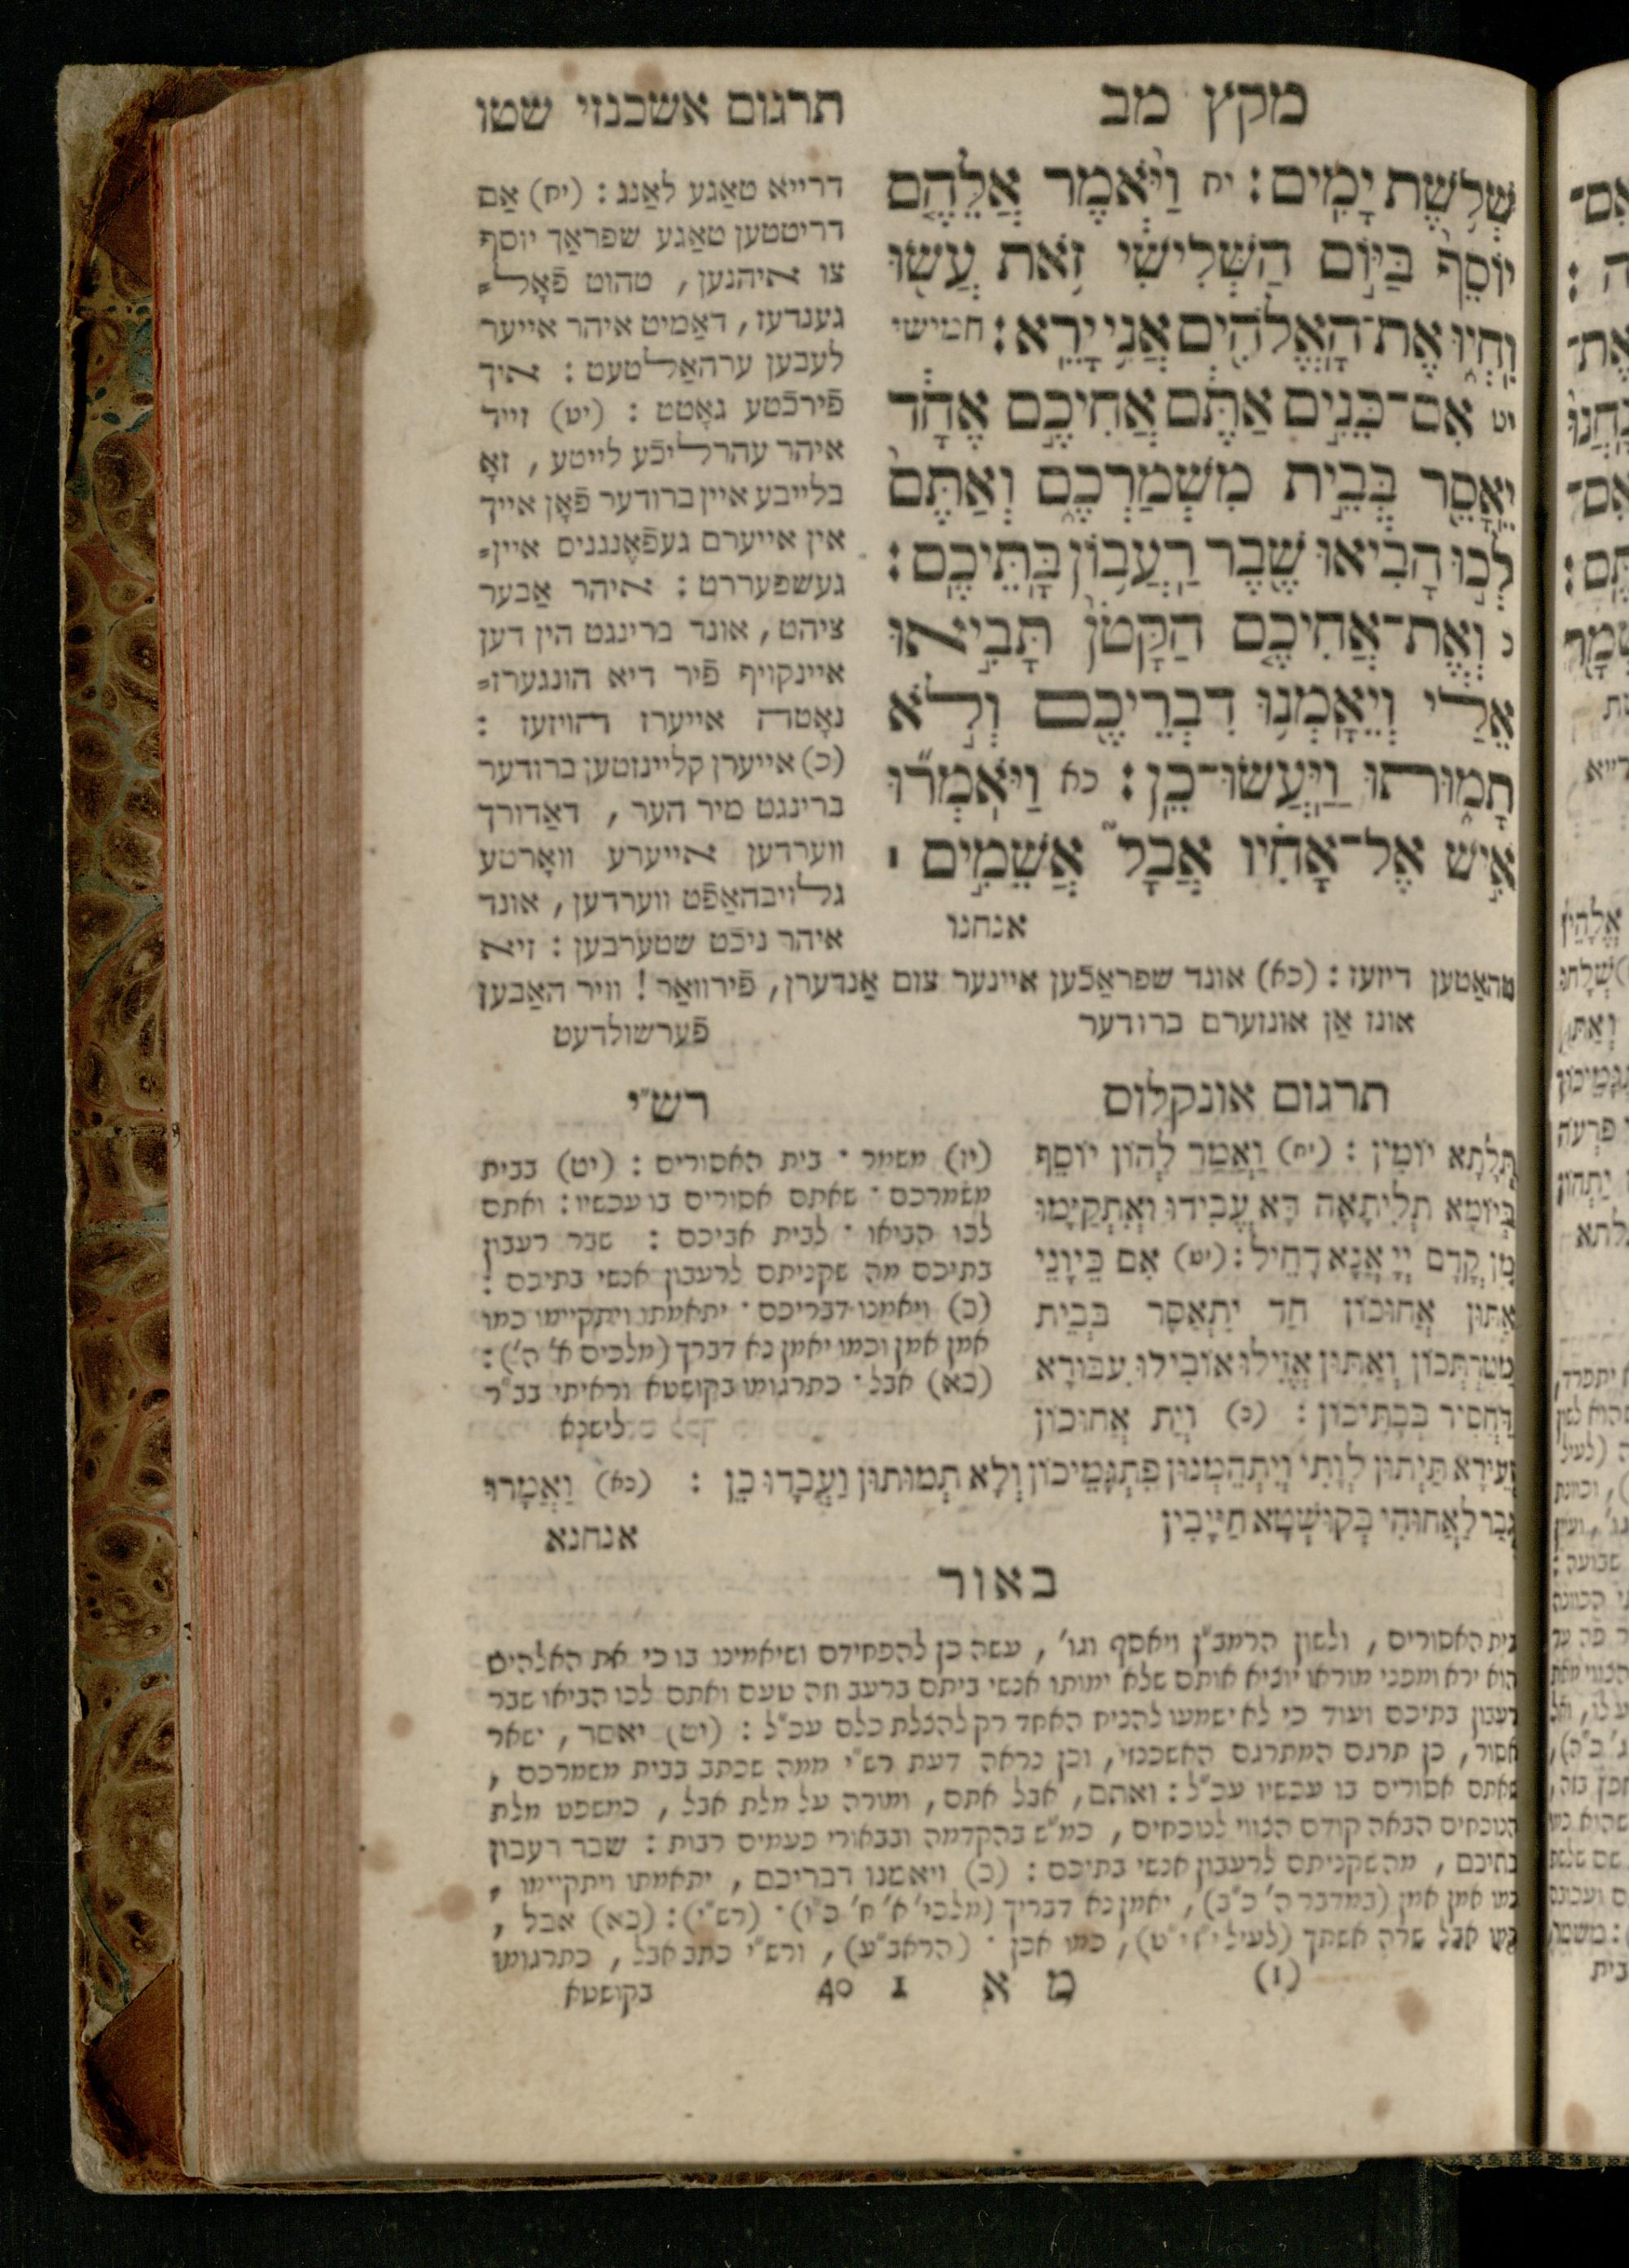 מקץ מב
תרגום אשכנזי שטו
שְׁלֹ֥שֶׁת יָמִֽים׃ יח וַיֹּ֨אמֶר אֲלֵהֶ֤ם
יוֹסֵף֙ בַּיּ֣וֹם הַשְּׁלִישִׁ֔י זֹ֥את עֲשׂ֖וּ
וִֽחְי֑וּ אֶת־הָאֱלֹהִ֖ים אֲנִ֥י יָרֵֽא׃ חמישי
יט אִם־כֵּנִ֣ים אַתֶּ֔ם אֲחִיכֶ֣ם אֶחָ֔ד
יֵאָסֵ֖ר בְּבֵ֣ית מִשְׁמַרְכֶ֑ם וְאַתֶּם֙
לְכ֣וּ הָבִ֔יאוּ שֶׁ֖בֶר רַעֲב֥וֹן בָּתֵּיכֶֽם׃
כ וְאֶת־אֲחִיכֶ֤ם הַקָּטֹן֙ תָּבִ֣יאוּ
אֵלַ֔י וְיֵאָמְנ֥וּ דִבְרֵיכֶ֖ם וְלֹ֣א
תָמ֑וּתוּ וַיַּעֲשׂוּ־כֵֽן׃ כא וַיֹּאמְר֞וּ
אִ֣ישׁ אֶל־אָחִ֗יו אֲבָל֮ אֲשֵׁמִ֣ים ׀
אנחנו
דרייא טאַגע לאַנג : (יח) אַם
דריטטען טאַגע שפראַך יוסף
צו איהנען, טהוט פֿאָל⸗
גענדעז, דאַמיט איהר אייער
לעבען ערהאַלטעט : איך
פֿירכֿטע גאָטט : (יט) זייד
איהר עהרליכֿע לייטע, זאָ
בלייבע איין ברודער פֿאָן אייך
אין אייערם געפֿאֶנגניס איין⸗
געשפעררט : איהר אַבער
ציהט, אונד ברינגט הין דען
איינקויף פֿיר דיא הונגערז⸗
נאָטה אייערז הויזעז :
(כ) אייערן קליינזטען ברודער
ברינגט מיר הער, דאַדורך
ווערדען אייערע וואָרטע
גלויבהאַפֿט ווערדען, אונד
איהר ניכֿט שטערבען : זיא
טהאַטען דיזעז : (כא) אונד שפראַכֿען איינער צום אַנדערן, פֿירוואַר ! וויר האַבען
אונז אַן אונזערם ברודער
פֿערשולדעט
תרגום אונקלוס
תְּלָתָא יוֹמִין : (יח) וַאֲמַר לְהוֹן יוֹסֵף
בְּיוֹמָא תְלִיתָאָה דָּא עֲבִידוּ וְאִתְקַיָּמוּ
מִן קֳדָם יְיָ אֲנָא דָחֵיל : (יט) אִם כֵּיוָנֵי
אַתּוּן אֲחוּכוֹן חַד יִתְאַסַר בְּבֵית
מַטַּרְתְּכוֹן וְאַתּוּן אֱזִילוּ אוֹבִילוּ עִבּוּרָא
דַּחֲסִיר בְּבָתֵּיכוֹן : (כ) וְיַת אֲחוּכוֹן
זְעֵירָא תַּיְתוּן לְוָתִי וְיִתְהֵמְנוּן פִּתְגָמֵיכוֹן וְלָא תְמוּתוּן וַעֲבָדוּ כֵן : (כא) וַאֲמָרוּ
גְּבַר לַאֲחוּהִי בְּקוּשְׁטָא חַיָּיבִין
אנחנא
רש״י
(יז) משמר · בית האסורים : (יט) בבית
משמרכם · שאתם אסורים בו עכשיו : ואתם
לכו הביאו · לבית אביכם : שבר רעבון
בתיכם מה שקניתם לרעבון אנשי בתיכם :
(כ) ויאמנו דבריכם · יתאמתו ויתקיימו כמו
אמן אמן וכמו יאמן נא דברך (מלכים א׳ ה׳) :
(כא) אבל · כתרגומו בקושטא וראיתי בב״ר
לישנא
באור
בית האסורים, ולשון הרמב״ן ויאסף וגו׳, עשה כן להפחידם ושיאמינו בו כי את האלהים
הוא ירא ומפני מוראו יוציא אותם שלא ימותו אנשי ביתם ברעב וזה טעם ואתם לכו הביאו שבר
רעבון בתיכם ועוד כי לא ישמעו להניח האחד רק להצלת כלם עכ״ל : (יט) יאסר, ישאר
אסור, כן תרגם המתרגם האשכנזי, וכן נראה דעת רש״י ממה שכתב בבית משמרכם,
שאתם אסורים בו עכשיו עכ״ל : ואתם, אבל אתם, ומורה על מלת אבל, כמשפט מלת
הנוכחים הבאה קודם הצווי לנוכחים, כמ״ש בהקדמה ובבאורי פעמים רבות : שבר רעבון
בתיכם, מה שקניתם לרעבון אנשי בתיכם : (כ) ויאמנו דבריכם, יתאמתו ויתקיימו,
כמו אמן אמן (במדבר ה׳ כ״ב), יאמן נא דבריך (מלכי׳ א׳ ח׳ כ״ו) · (רש״י) : (כא) אבל,
כמו אבל שרה אשתך (לעיל י״ז י״ט), כמו אכן · (הראב״ע), ורש״י כתב אבל, כתרגומו
(I) מ א I 40
בקושטא